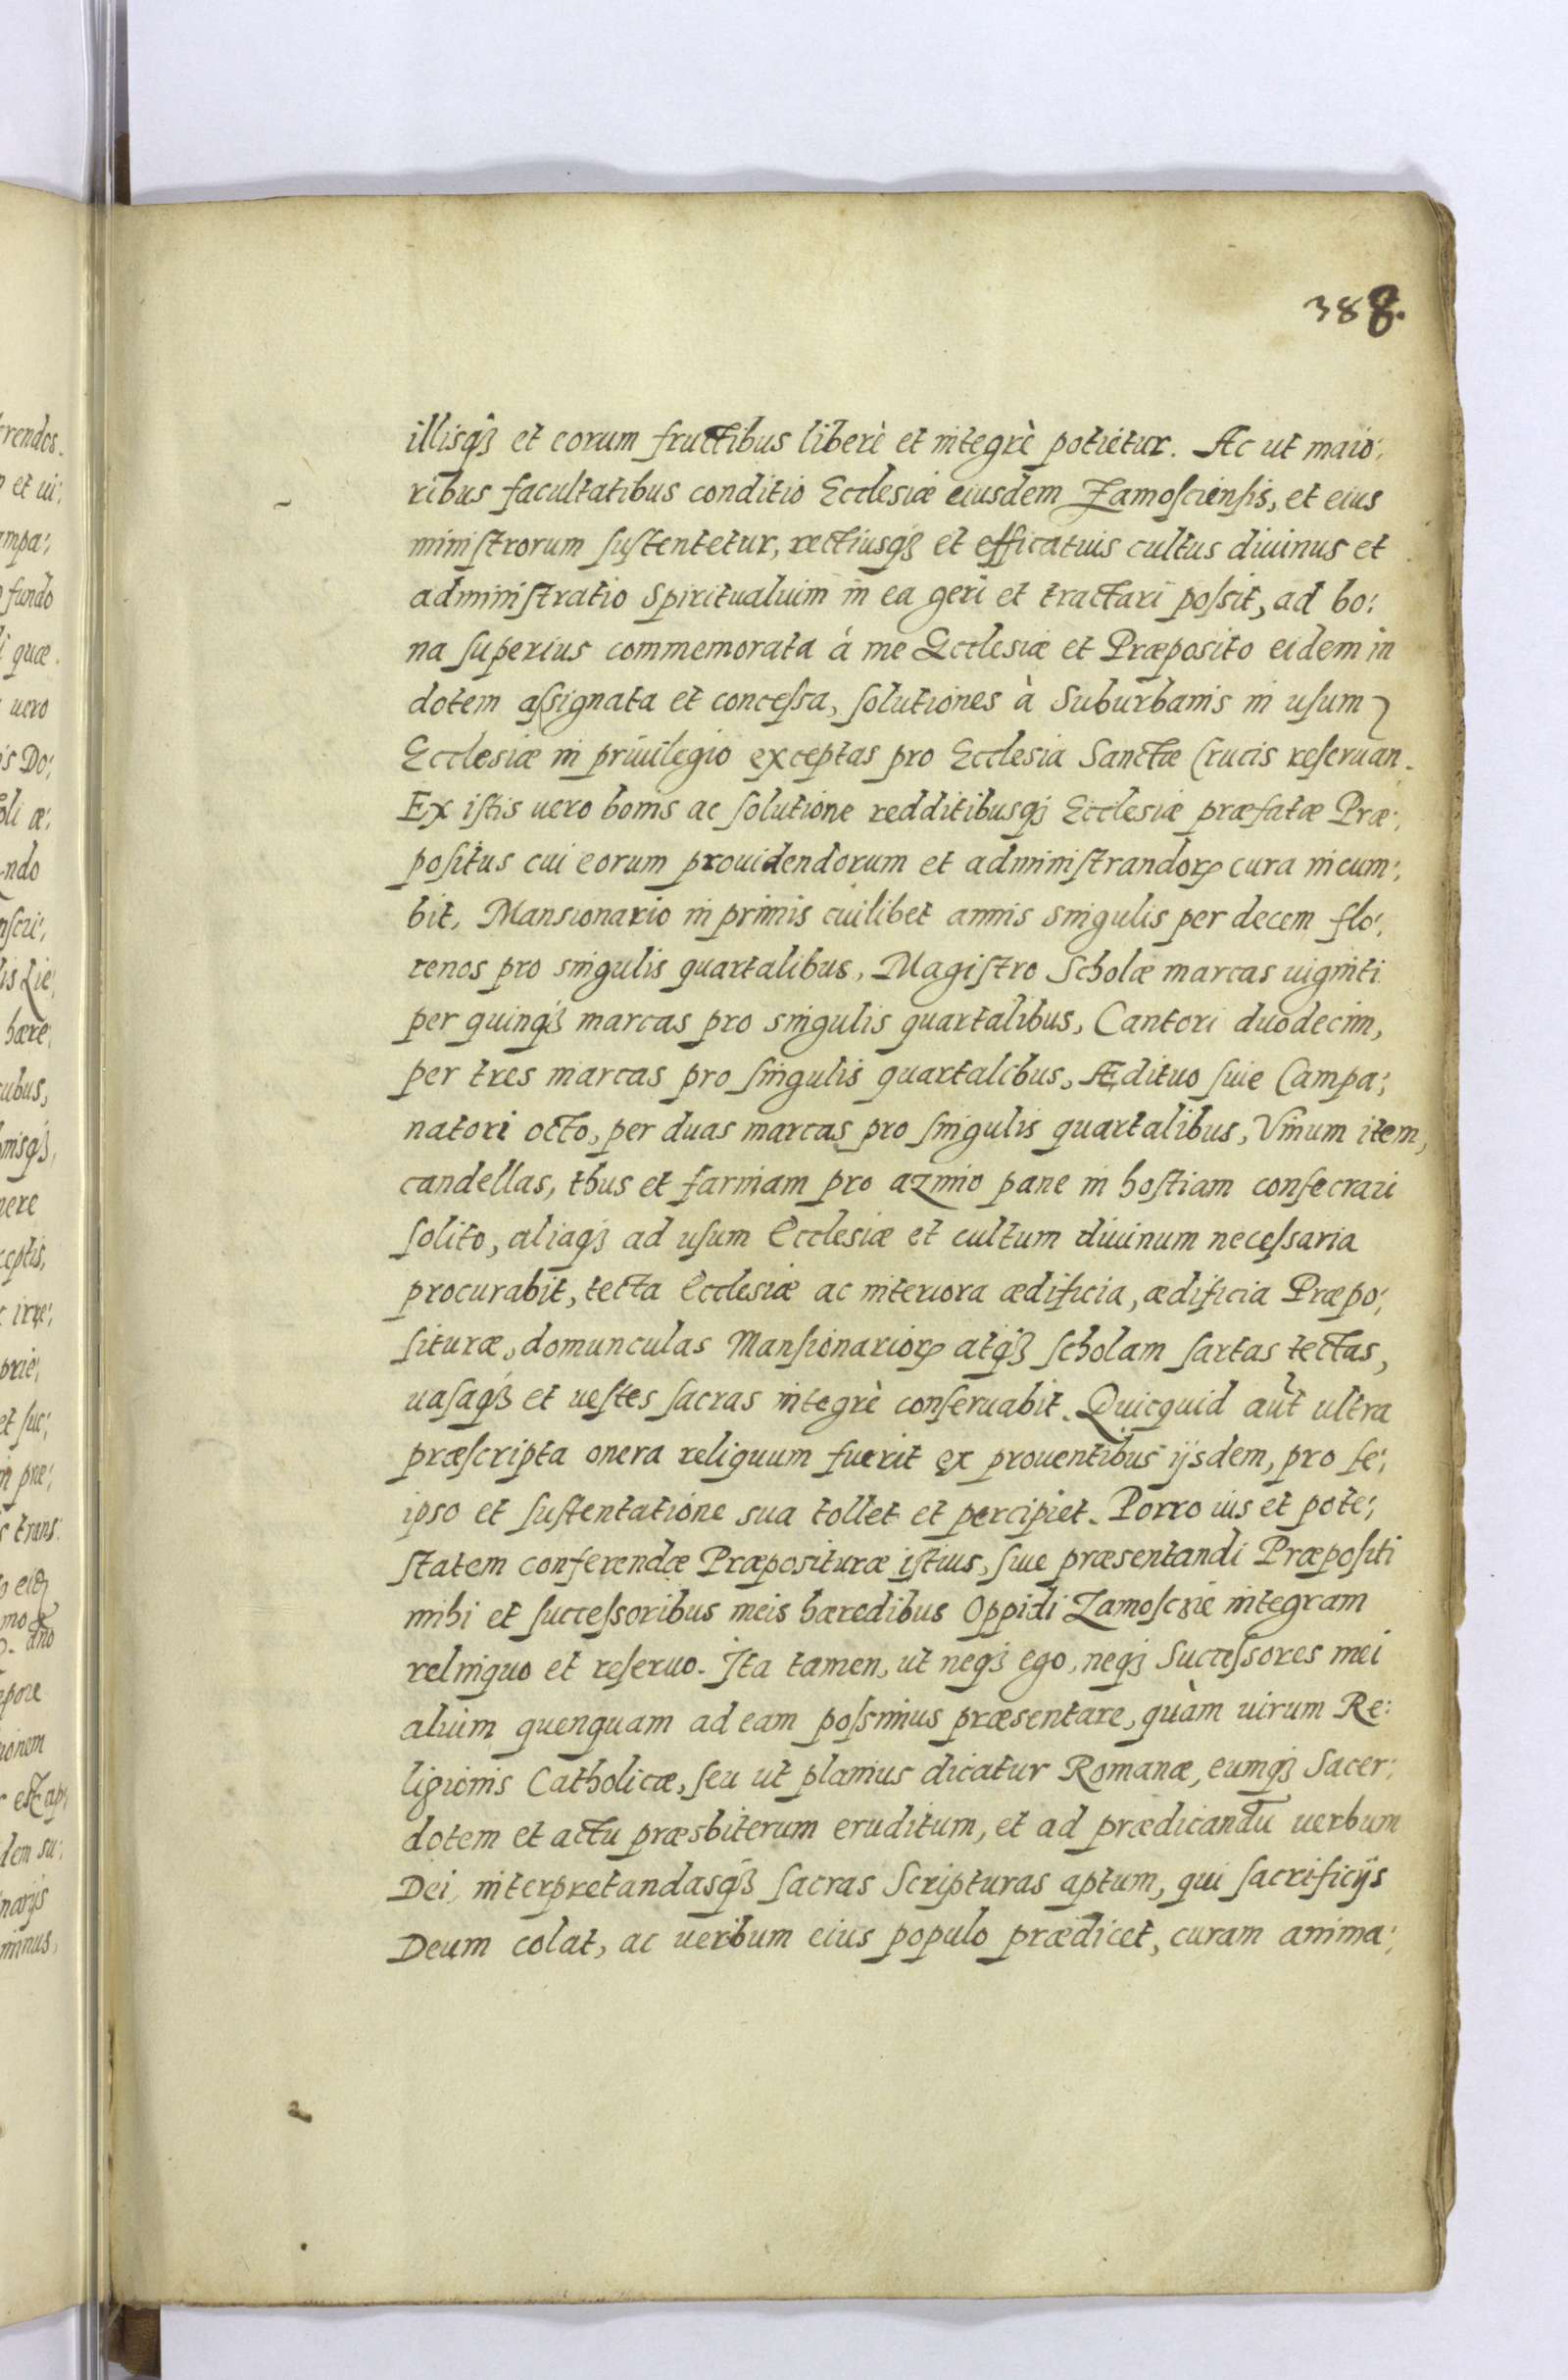 388.
illisqꝫ et eorum fructibus liberè et integrè potietur. Ac ut maio:
ribus facultatibus conditio Ecclesiæ eiusdem Zamoſcienſis, et eius
miniſtrorum ſuſtentetur, rectiusqꝫ et efficatius cultus diuinus et
adminiſtratio Spiritualium in ea geri et tractari poſsit, ad bo:
na ſuperius commemorata á me Ecclesiæ et Præposito eidem in
dotem aſsignata et conceſsa, ſolutiones à Suburbanis in uſum
Ecclesiæ in priuilegio exceptas pro Ecclesia Sanctæ Crucis reſeruan.
Ex iſtis uero bonis ac ſolutione redditibusqꝫ Ecclesiæ præfatæ Præ:
poſitus cui eorum prouidendorum et adminiſtrandorꝝ cura incum:
bit, Mansionario in primis cuilibet annis singulis per decem flo:
renos pro singulis quartalibus, Magiſtro Scholæ marcas uiginti
per quinqꝫ marcas pro singulis quartalibus, Cantori duodecim,
per tres marcas pro ſingulis quartalibus, Ædituo ſiue Campa:
natori octo, per duas marcas pro ſingulis quartalibus, Vinum item,
candellas, thus et farinam pro azimo pane in hoſtiam conſecrari
ſolito, aliaqꝫ ad uſum Ecclesiæ et cultum diuinum neceſsaria
procurabit, tecta Ecclesiæ ac interiora ædificia, ædificia Præpo:
ſituræ, domunculas Manſionariorꝝ atqꝫ ſcholam ſartas tectas,
uaſaqꝫ et ueſtes ſacras integrè conſeruabit. Quicquid aūt ultra
præſcripta onera reliquum fuerit ex prouentibus ijsdem, pro ſe:
ipso et ſuſtentatione sua tollet et percipiet. Porro ius et pote:
ſtatem conferendæ Præposituræ iſtius, ſiue præsentandi Præpoſiti
mihi et ſucceſsoribus meis hæredibus Oppidi Zamoſcie integram
relinquo et reſeruo. Ita tamen, ut neqꝫ ego, neqꝫ Succeſsores mei
alium quenquam ad eam poſsimus præsentare, quàm uirum Re:
ligionis Catholicæ, ſeu ut planius dicatur Romanæ, eumqꝫ Sacer:
dotem et actu præsbiterum eruditum, et ad prædicandū uerbum
Dei, interpretandasqꝫ ſacras Scripturas aptum, qui ſacrificijs
Deum colat, ac uerbum eius populo prædicet, curam anima: